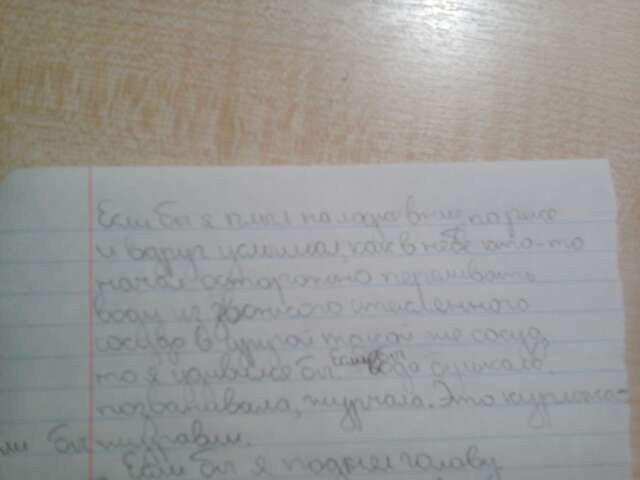 Если бы я плыл на лодке вниз по реке
и вдруг услышал, как в небе кто-то
начал осторожно переливать
воду из звонкого стеклянного
сосуда в другой такой же сосуд,
то я
бы
вода булькала,
позванивала, журчала. Это курлыка-
ли бы журавли.
Если бы я поднял голову